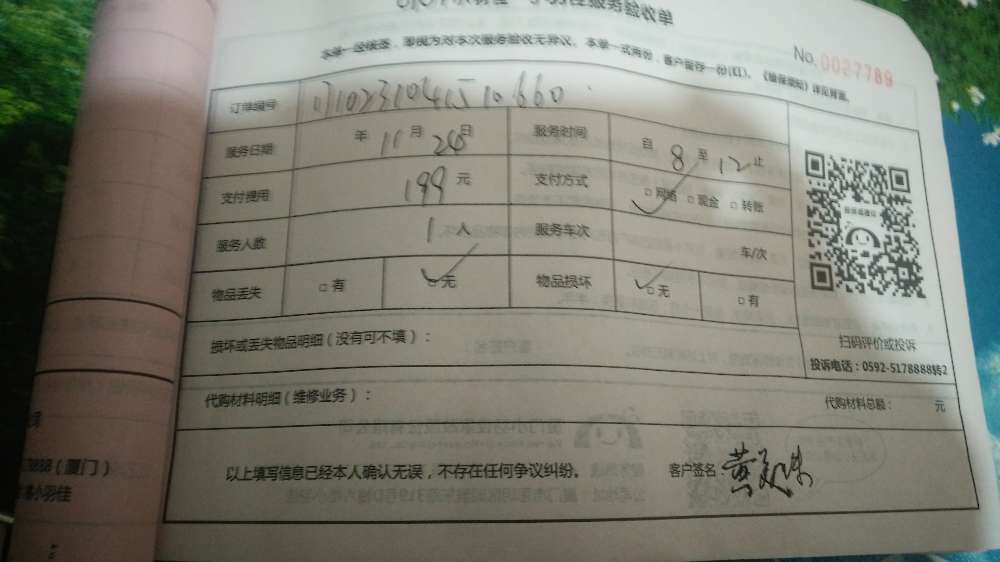 小羽佳服务验收单
本单一经核签，即视为对本次服务验收无异议。本单一式两份，客户留存一份(红)。《维保须知》详见背面。
No.0027789
订单编号
服务日期 年 11月 24日 服务时间 自 8 至 12 止
支付费用 199 元 支付方式 □网络 □现金 □转账
服务人数 1 人 服务车次 车/次
物品丢失 □有 □无 物品损坏 □无 □有
损坏或丢失物品明细（没有可不填）：
扫码评价或投诉
投诉电话：0592-5178888转2
代购材料明细（维修业务）： 代购材料总额： 元
以上填写信息已经本人确认无误，不存在任何争议纠纷。 客户签名
（厦门）
小羽佳